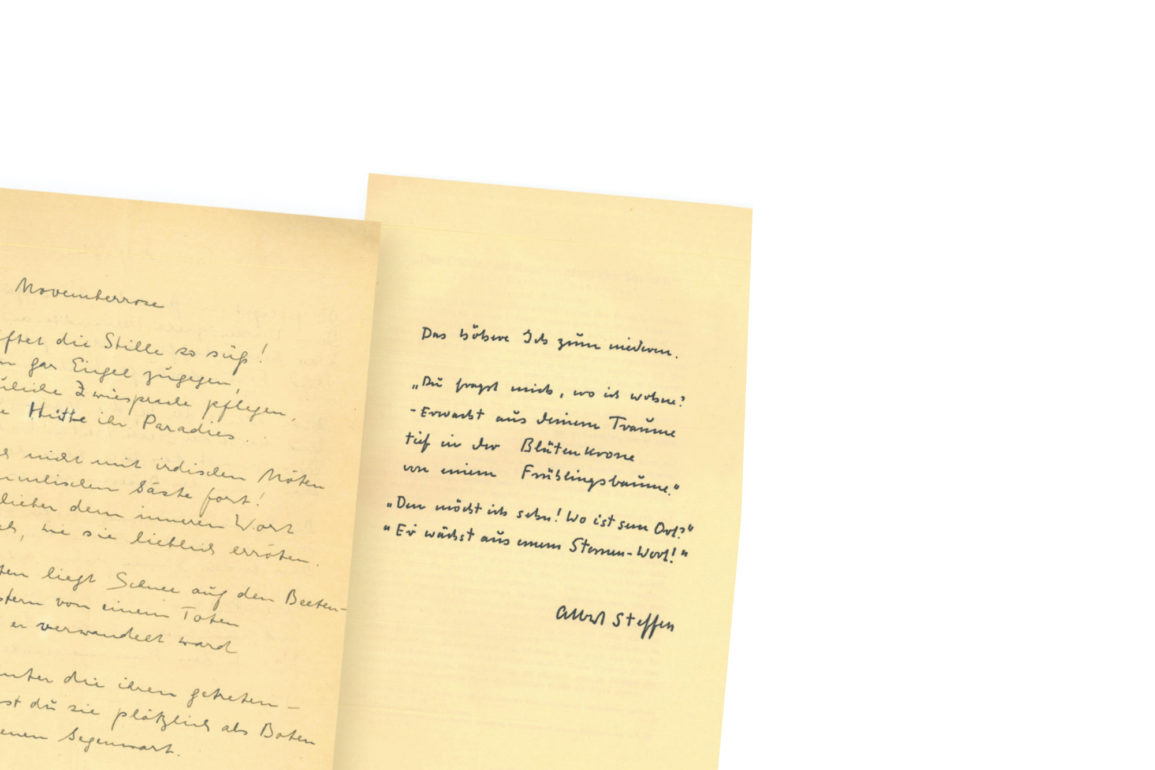 Novemberrose
ftet die Stille so süß!
n gar Engel zugegen,
Zwiesprache pflegen,
e Hütte ihr Paradies.
nicht mit irdischen Nöten
mmlischen Gäste fort!
lieber dem inneren Wort
wie sie lieblich erröten.
ten liegt Schnee auf den Beeten-
stern von einem Toten
er verwandelt ward
nter die ihren getreten-
st du sie plötzlich als Boten
enen Gegenwart.
Das höhere Ich zum niederen.
„Du fragst mich, wo ich wohne?
-Erwacht aus deinem Traume
tief in der Blütenkrone
von einem Frühlingsbaume."
„Den möcht ich sehn! Wo ist sein Ort?"
"Er wächst aus einem Sternen-Wort!"
Albert Steffen